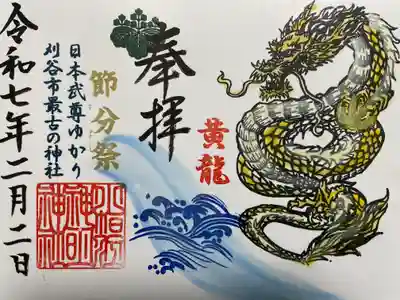 奉拝
黄龍
節分祭
日本武尊ゆかり
刈谷市最古の神社
令和七年二月二日